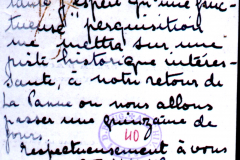 espère qu'une fruc-
tueuse perquisition
me mettra sur une
piste historique intéres-
sante, à notre retour de
la Panne où nous allons
passer une quinzaine de
jours
respectueusement à vous
40